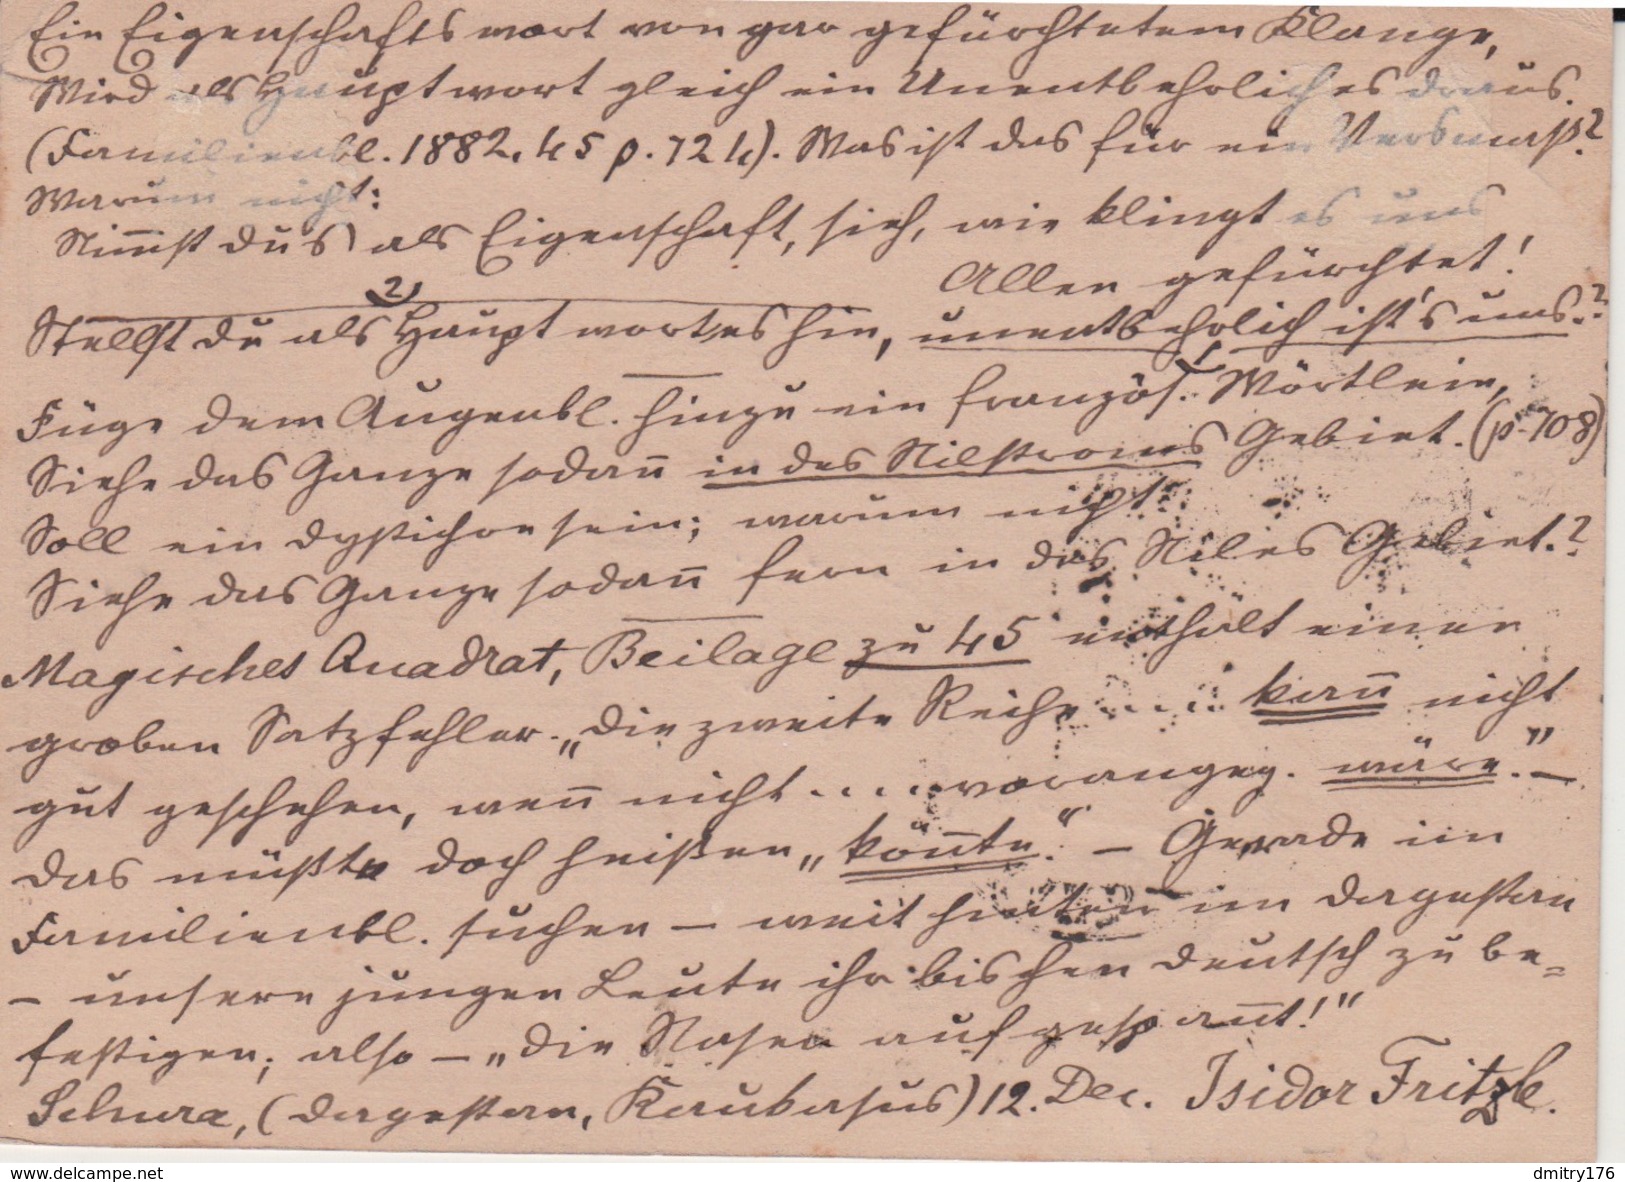 Ein Eigenschaftswort von gar gefürchtetem Klange,
Wird als Hauptwort gleich ein Unentbehrliches draus.
(Familienbl. 1882. 45 p. 724). Was ist das für ein Versmaß?
Warum nicht:
Nim̄st du's als Eigenschaft, sieh, wie klingt es uns
Allen gefürchtet!
2)
Stellst du als Hauptwort es hin, unentbehrlich ist's uns.?
Füge dem Augenbl. hinzu ein französ. Wörtlein,
Siehe das Ganze sodan̄ in des Nilstroms Gebiet. (p. 708)
Soll ein Dystichon sein; warum nicht:
Siehe das Ganze sodan̄ fern in des Niles Gebiet.?
Magisches Quadrat, Beilage zu 45 enthält einen
groben Satzfehler. „Die zweite Reihe .... kan̄ nicht
gut geschehen, wen̄ nicht .... vorangeg. wäre." —
Das müßte doch heißen „kön̄te." — Gerade im
Familienbl. suchen — weit hinten im Dagestan
— unsere jungen Leute ihr bischen Deutsch zu be-
festigen; also — „die Nasen aufgespan̄t!"
Schura, (Dagestan, Kaukasus) 12. Dec. Isidor Fritzle.
www.delcampe.net
dmitry176